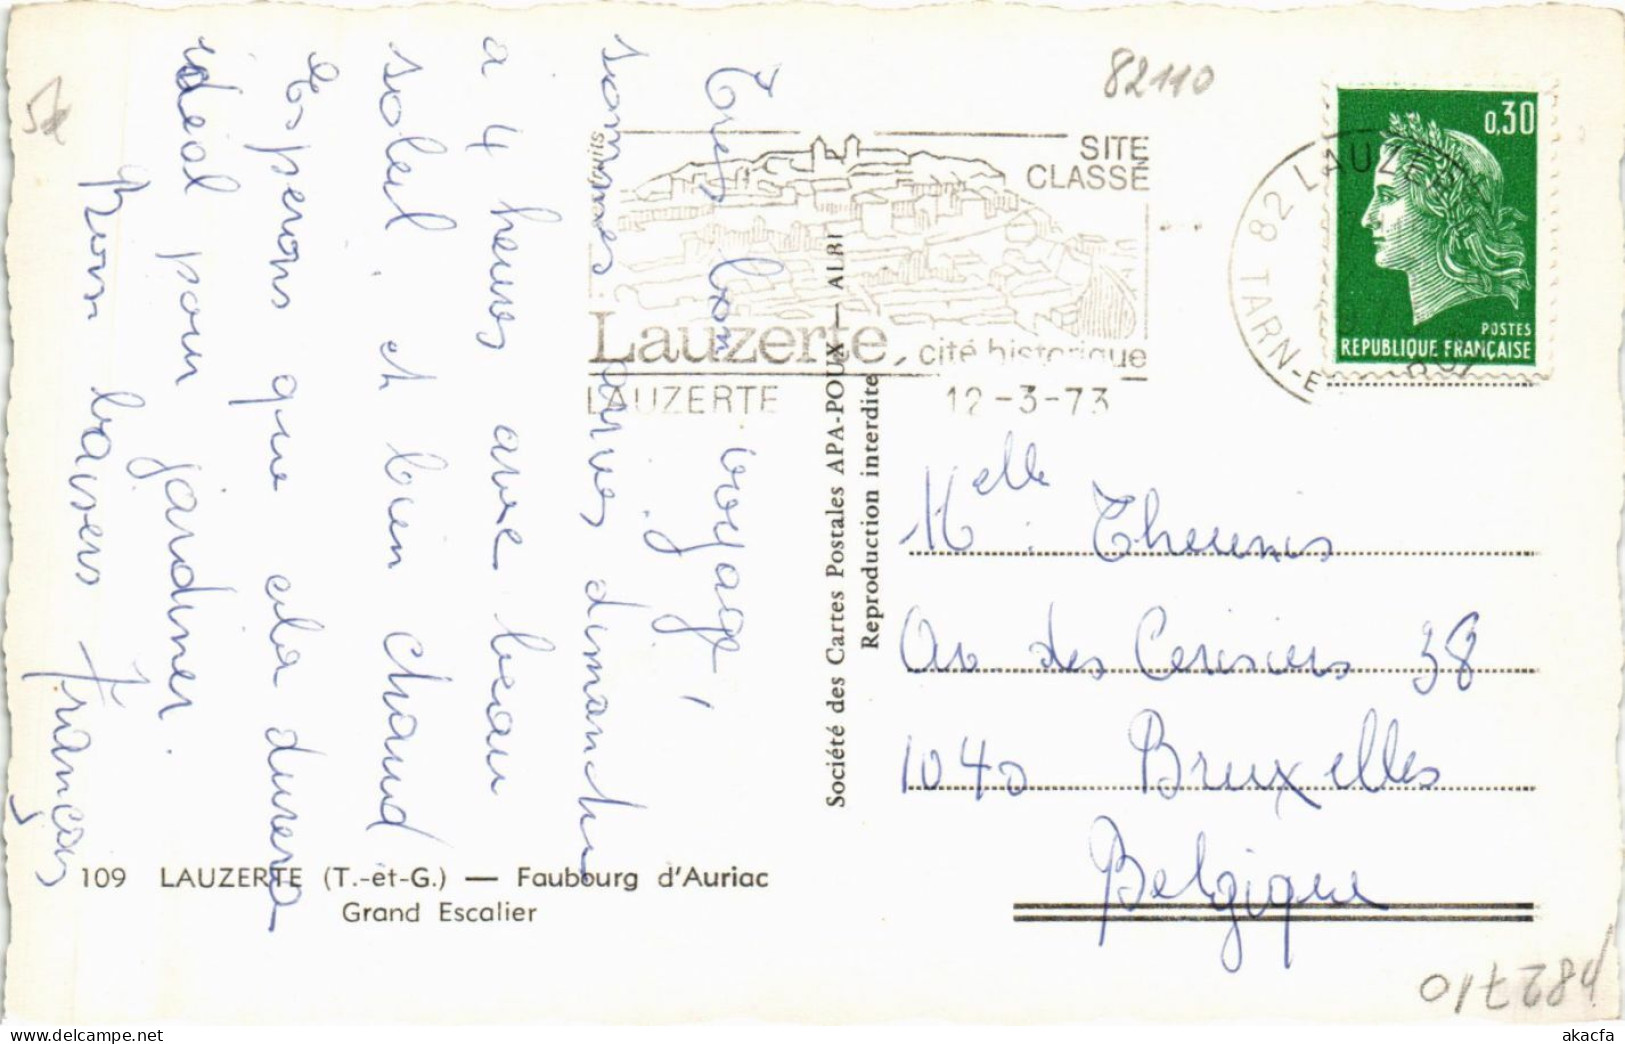 Très bon voyage !
sommes arrivés dimanche
a 4 heures avec beau
soleil et bien chaud
Espérons que cela durera
idéal pour jardiner.
Bons baisers François
82110
SITE
CLASSÉ
Lauzerte, cité historique
LAUZERTE 12-3-73
82 LAUZERTE
TARN-E
0,30
POSTES
REPUBLIQUE FRANÇAISE
Société des Cartes Postales APA-POUX — ALBI
Reproduction interdite
Melle Theunis
Av des Cerisiers 38
1040 Bruxelles
Belgique
109 LAUZERTE (T.-et-G.) — Faubourg d'Auriac
Grand Escalier
akacfa